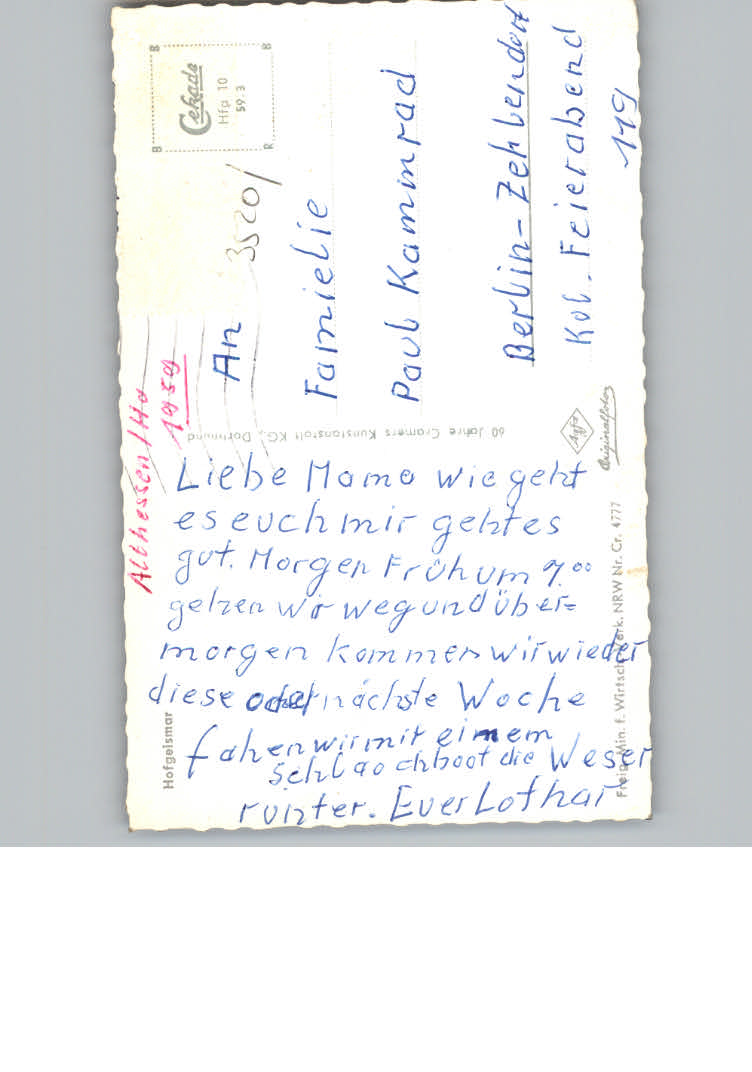 Liebe Mama wie geht
es euch mir gehtes
gut. Morgen Früh um 7.00
gehen wir weg und über=
morgen kommen wir wieder
diese oder nächste Woche
fahen wir mit einem
Schlaochboot die Weser
runter. Euer Lothar
An
Famielie
Paul Kammrad
Berlin-Zehlendorf
Kol. Feierabend
119
3520/
Althessen/Ho
1959
Cekade
Hfg 10
59.3
B
B
B
R
60 Jahre Cramers Kunstanstalt KG., Dortmund
Agfa
Originalfoto
Hofgeismar
Freig. Min. f. Wirtsch. Verk. NRW Nr. Cr. 4777